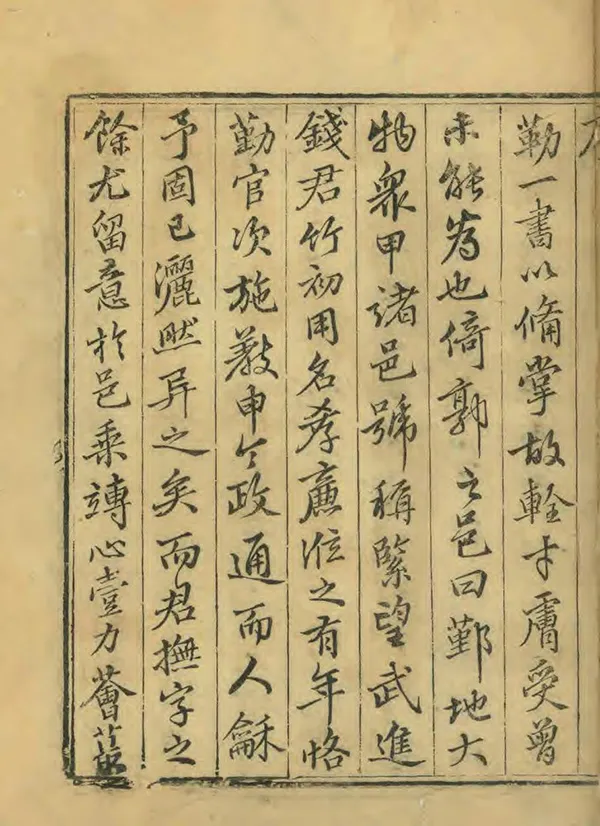 勒一書以俻掌故輇才膚受曾
未能為也倚郭之邑曰鄞地大
物衆甲諸邑號稱緊望武進
錢君竹初用名孝廉涖之有年恪
勤官次施教申令政通而人龢
予固已灑然异之矣而君撫字之
餘尤留意於邑乘竱心壹力薈